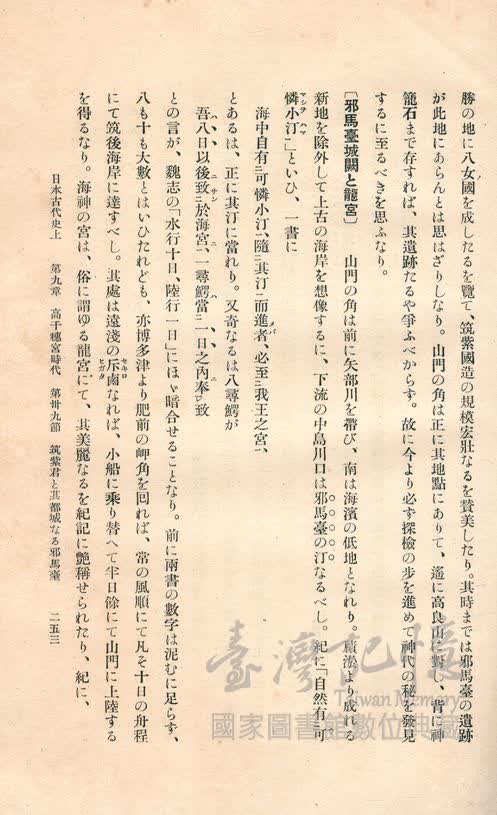 勝の地に八女國を成したるを覽て、筑紫國造の規模宏壯なるを賛美したり。其時までは邪馬臺の遺跡
が此地にあらんとは思はざりしなり。山門の角は正に其地點にありて、遙に高良山に對し、背に神
籠石まで存すれば、其遺跡たるや爭ふべからず。故に今より必ず探檢の步を進めて神代の秘を發見
するに至るべきを思ふなり。
〔邪馬臺城闕と龍宮〕 山門の角は前に矢部川を帶び、南は海濱の低地となれり。積淤より成れる
新地を除外して上古の海岸を想像するに、下流の中島川口は邪馬臺の汀なるべし。紀に「自然有可
憐小汀」といひ、一書に
海中自有可憐小汀、隨其汀而進者、必至我王之宮、
とあるは、正に其汀に當れり。又奇なるは八尋鰐が
吾八日以後致於海宮、一尋鰐當一日之內奉致
との言が、魏志の「水行十日、陸行一日」にほゞ暗合せることなり。前に兩書の數字は泥むに足らず、
八も十も大數とはいひたれども、亦博多津より肥前の岬角を回れば、常の風順にて凡そ十日の舟程
にて筑後海岸に達すべし。其處は遠淺の斥鹵なれば、小船に乘り替へて半日餘にて山門に上陸する
を得るなり。海神の宮は、俗に謂ゆる龍宮にて、其美麗なるを紀記に艶稱せられたり、紀に、
日本古代史上 第九章 高千穗宮時代 第卅九節 筑紫君と其都城なる邪馬臺 二五三
臺灣記憶
Taiwan Memory
國家圖書館數位典藏